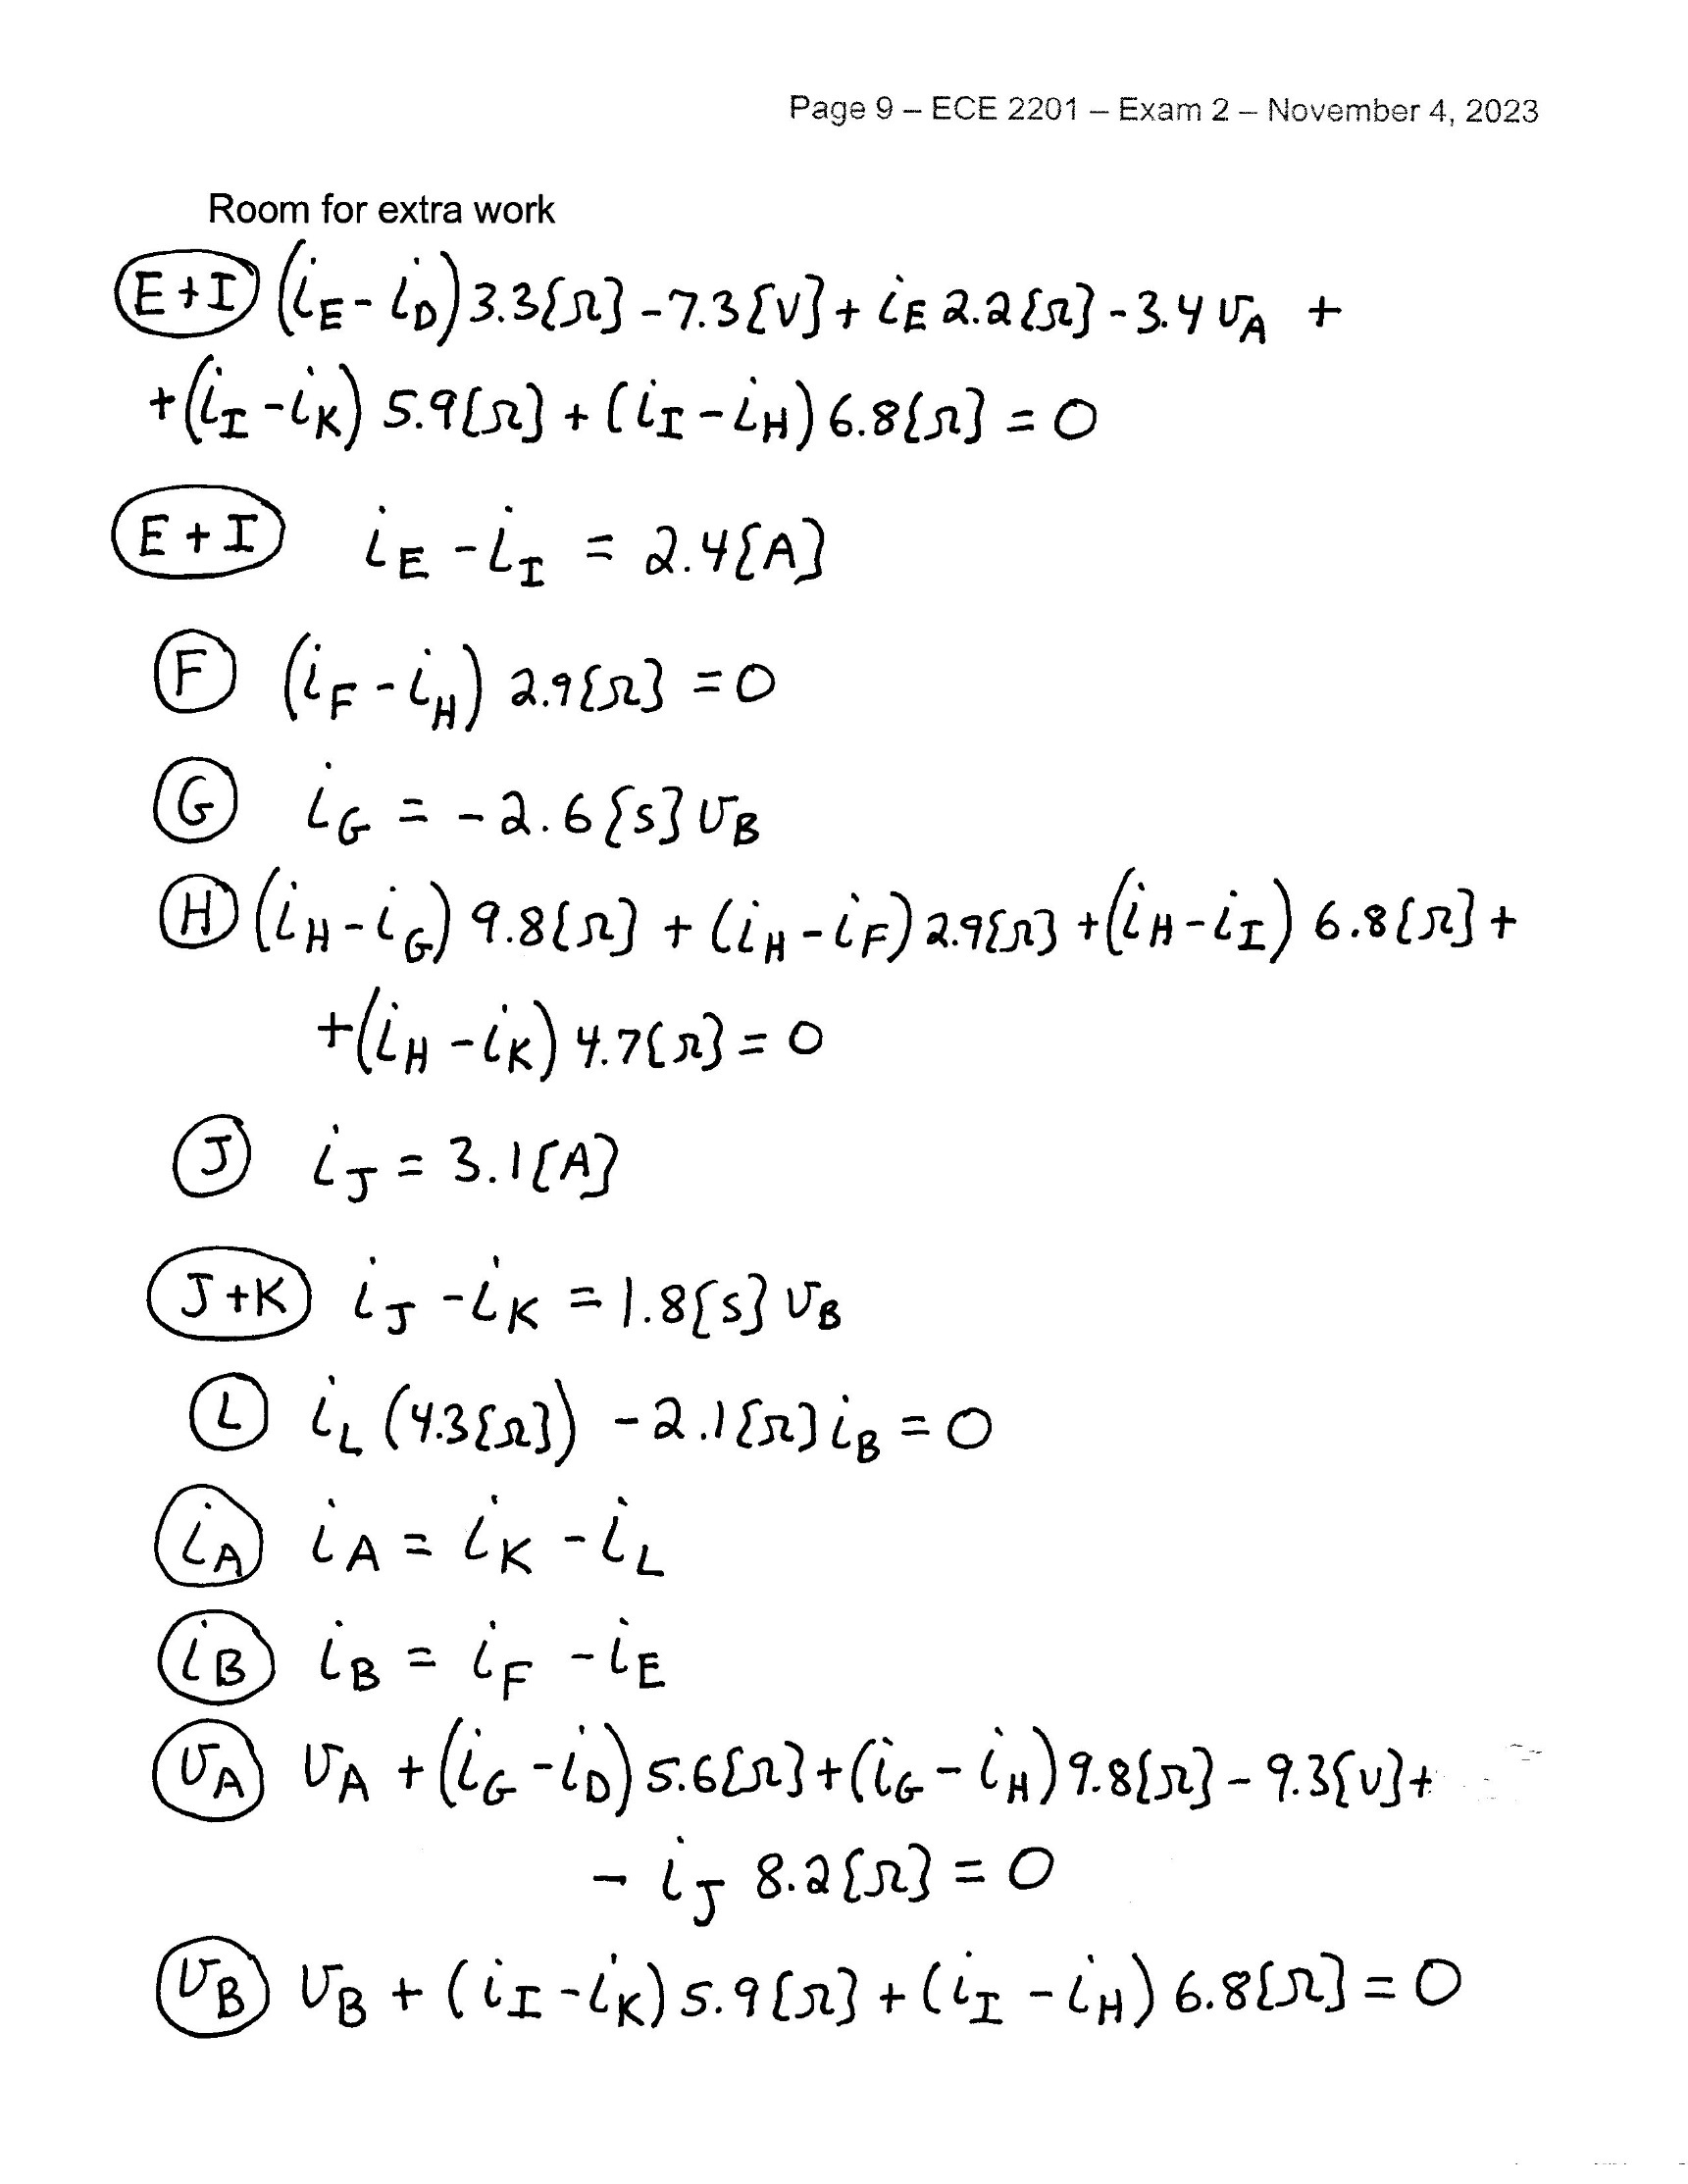 Page 9 – ECE 2201 – Exam 2 – November 4, 2023
Room for extra work
E+I (iE - iD) 3.3[Ω] - 7.3[V] + iE 2.2[Ω] - 3.4 vA +
+ (iI - iK) 5.9[Ω] + (iI - iH) 6.8[Ω] = 0
E+I iE - iI = 2.4[A]
F (iF - iH) 2.9[Ω] = 0
G iG = -2.6[S] vB
H (iH - iG) 9.8[Ω] + (iH - iF) 2.9[Ω] + (iH - iI) 6.8[Ω] +
+ (iH - iK) 4.7[Ω] = 0
J iJ = 3.1[A]
J+K iJ - iK = 1.8[S] vB
L iL (4.3[Ω]) - 2.1[Ω] iB = 0
iA iA = iK - iL
iB iB = iF - iE
vA vA + (iG - iD) 5.6[Ω] + (iG - iH) 9.8[Ω] - 9.3[V] +
- iJ 8.2[Ω] = 0
vB vB + (iI - iK) 5.9[Ω] + (iI - iH) 6.8[Ω] = 0